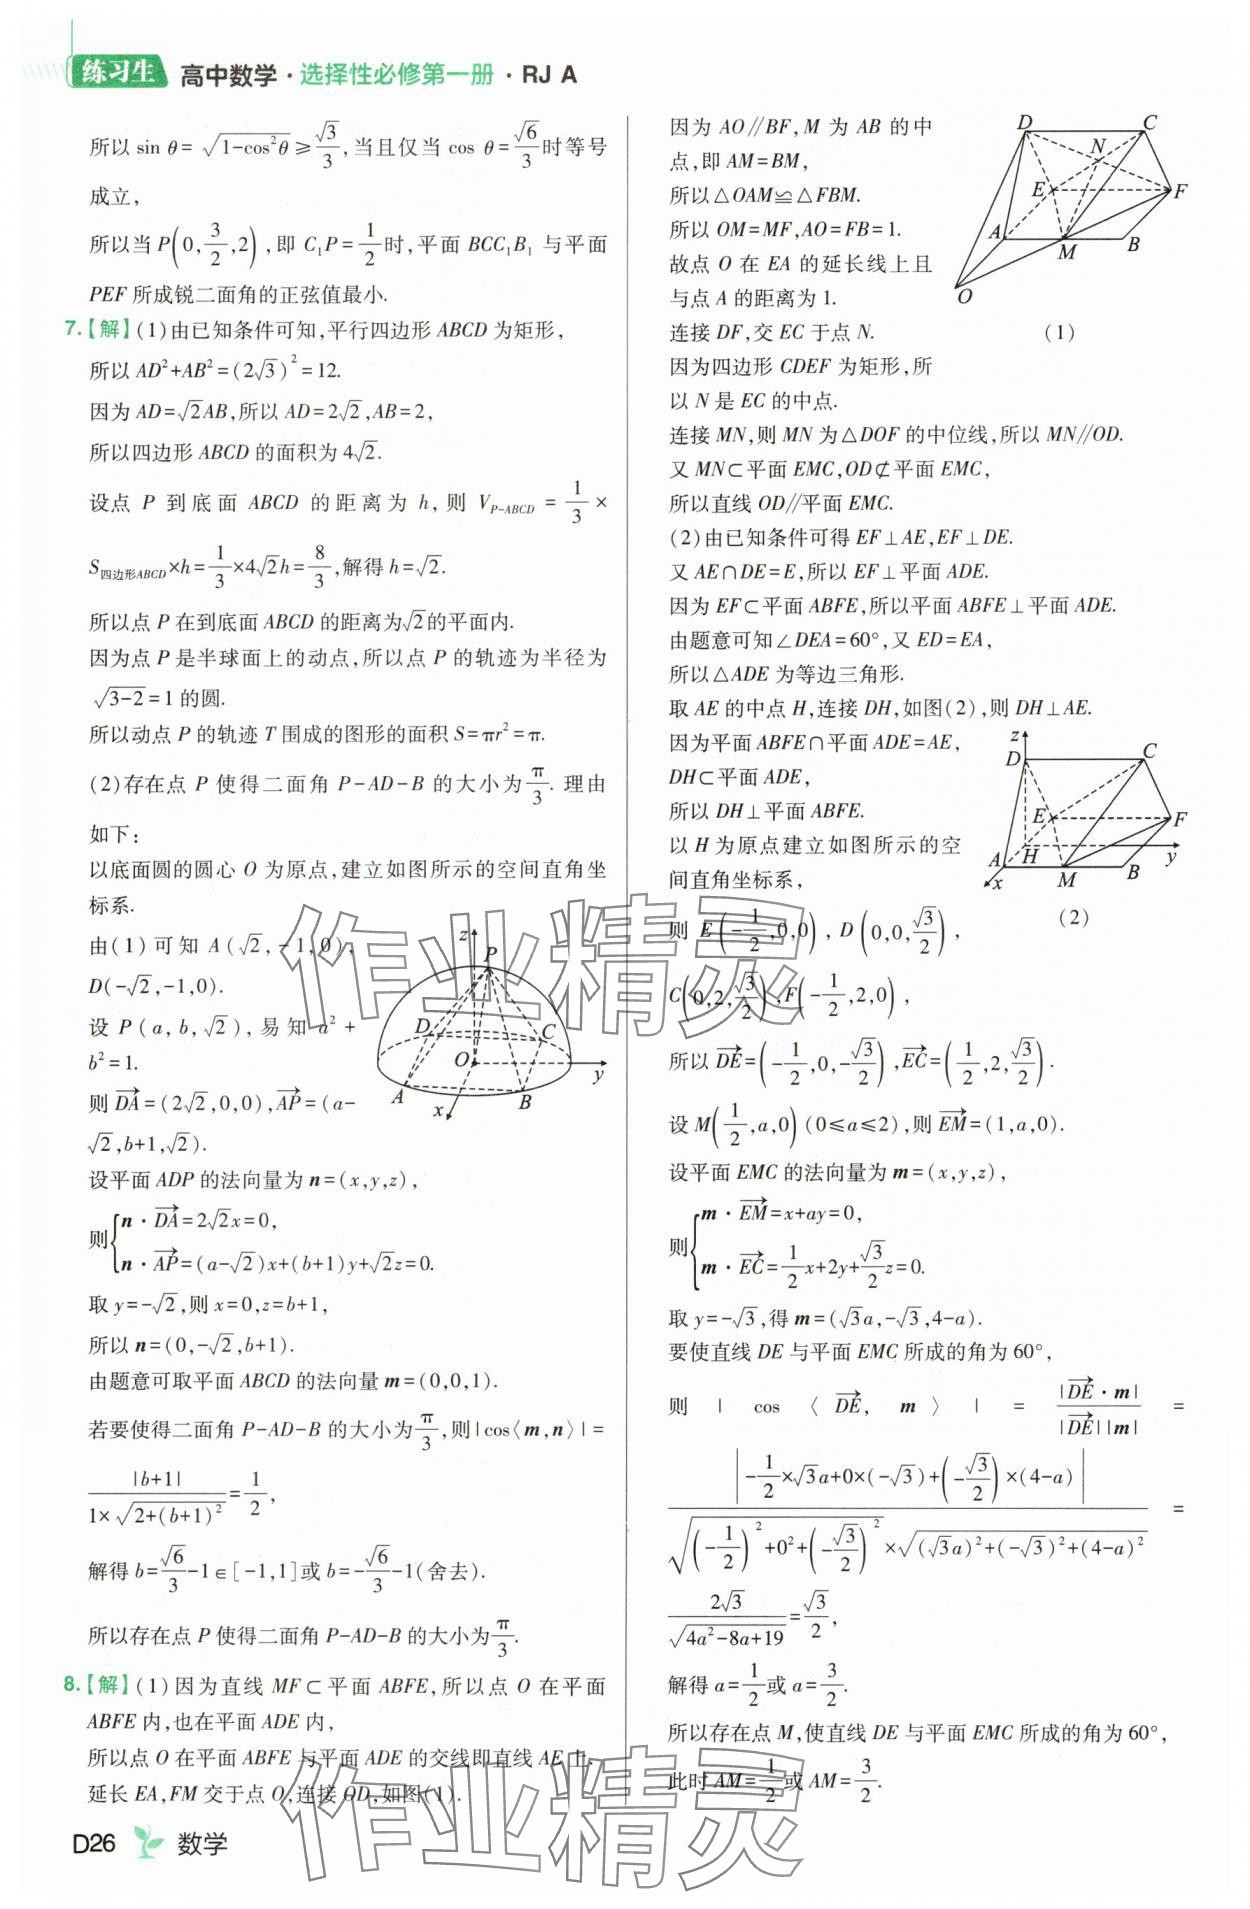 练习生 高中数学·选择性必修第一册·RJ A
所以 sin θ=√(1-cos²θ)≥√3/3,当且仅当 cos θ=√6/3时等号
成立,
所以当P(0,3/2,2),即 C₁P=1/2时,平面 BCC₁B₁ 与平面
PEF 所成锐二面角的正弦值最小.
7.【解】(1)由已知条件可知,平行四边形 ABCD 为矩形,
所以 AD²+AB²=(2√3)²=12.
因为 AD=√2AB,所以 AD=2√2,AB=2,
所以四边形 ABCD 的面积为 4√2.
设点 P 到底面 ABCD 的距离为 h,则 V_{P-ABCD}=1/3×
S_{四边形ABCD}×h=1/3×4√2h=8/3,解得 h=√2.
所以点 P 在到底面 ABCD 的距离为√2的平面内.
因为点 P 是半球面上的动点,所以点 P 的轨迹为半径为
√(3-2)=1 的圆.
所以动点 P 的轨迹 T 围成的图形的面积 S=πr²=π.
(2)存在点 P 使得二面角 P-AD-B 的大小为π/3. 理由
如下:
以底面圆的圆心 O 为原点,建立如图所示的空间直角坐
标系.
由(1)可知 A(√2,-1,0),
D(-√2,-1,0).
设 P(a,b,√2),易知 a²+
b²=1.
则DA→=(2√2,0,0),AP→=(a-
√2,b+1,√2).
z
P
D
C
O
y
A
B
x
设平面 ADP 的法向量为 n=(x,y,z),
则{n·DA→=2√2x=0,
n·AP→=(a-√2)x+(b+1)y+√2z=0.
取 y=-√2,则 x=0,z=b+1,
所以 n=(0,-√2,b+1).
由题意可取平面 ABCD 的法向量 m=(0,0,1).
若要使得二面角 P-AD-B 的大小为π/3,则|cos〈m,n〉|=
|b+1|/(1×√(2+(b+1)²))=1/2,
解得 b=√6/3-1∈[-1,1]或 b=-√6/3-1(舍去).
所以存在点 P 使得二面角 P-AD-B 的大小为π/3.
8.【解】(1)因为直线 MF⊂平面 ABFE,所以点 O 在平面
ABFE 内,也在平面 ADE 内,
所以点 O 在平面 ABFE 与平面 ADE 的交线即直线 AE 上.
延长 EA,FM 交于点 O,连接 OD,如图(1).
因为 AO∥BF,M 为 AB 的中
点,即 AM=BM,
所以△OAM≌△FBM.
所以 OM=MF,AO=FB=1.
故点 O 在 EA 的延长线上且
与点 A 的距离为 1.
连接 DF,交 EC 于点 N.
D
C
N
E
F
A
M
B
O
(1)
因为四边形 CDEF 为矩形,所
以 N 是 EC 的中点.
连接 MN,则 MN 为△DOF 的中位线,所以 MN∥OD.
又 MN⊂平面 EMC,OD⊄平面 EMC,
所以直线 OD∥平面 EMC.
(2)由已知条件可得 EF⊥AE,EF⊥DE.
又 AE∩DE=E,所以 EF⊥平面 ADE.
因为 EF⊂平面 ABFE,所以平面 ABFE⊥平面 ADE.
由题意可知∠DEA=60°,又 ED=EA,
所以△ADE 为等边三角形.
取 AE 的中点 H,连接 DH,如图(2),则 DH⊥AE.
因为平面 ABFE∩平面 ADE=AE,
DH⊂平面 ADE,
所以 DH⊥平面 ABFE.
以 H 为原点建立如图所示的空
间直角坐标系,
z
D
C
E
F
A
H
y
x
M
B
(2)
则 E(-1/2,0,0),D(0,0,√3/2),
C(0,2,√3/2),F(-1/2,2,0),
所以DE→=(-1/2,0,-√3/2),EC→=(1/2,2,√3/2).
设 M(1/2,a,0)(0≤a≤2),则EM→=(1,a,0).
设平面 EMC 的法向量为 m=(x,y,z),
则{m·EM→=x+ay=0,
m·EC→=1/2x+2y+√3/2z=0.
取 y=-√3,得 m=(√3a,-√3,4-a).
要使直线 DE 与平面 EMC 所成的角为 60°,
则 |cos〈DE→,m〉|=|DE→·m|/(|DE→||m|)=
|-1/2×√3a+0×(-√3)+(-√3/2)×(4-a)|/(√((-1/2)²+0²+(-√3/2)²)×√((√3a)²+(-√3)²+(4-a)²))=
2√3/√(4a²-8a+19)=√3/2,
解得 a=1/2或 a=3/2.
所以存在点 M,使直线 DE 与平面 EMC 所成的角为 60°,
此时 AM=1/2或 AM=3/2.
作业精灵
作业精灵
D26 数学